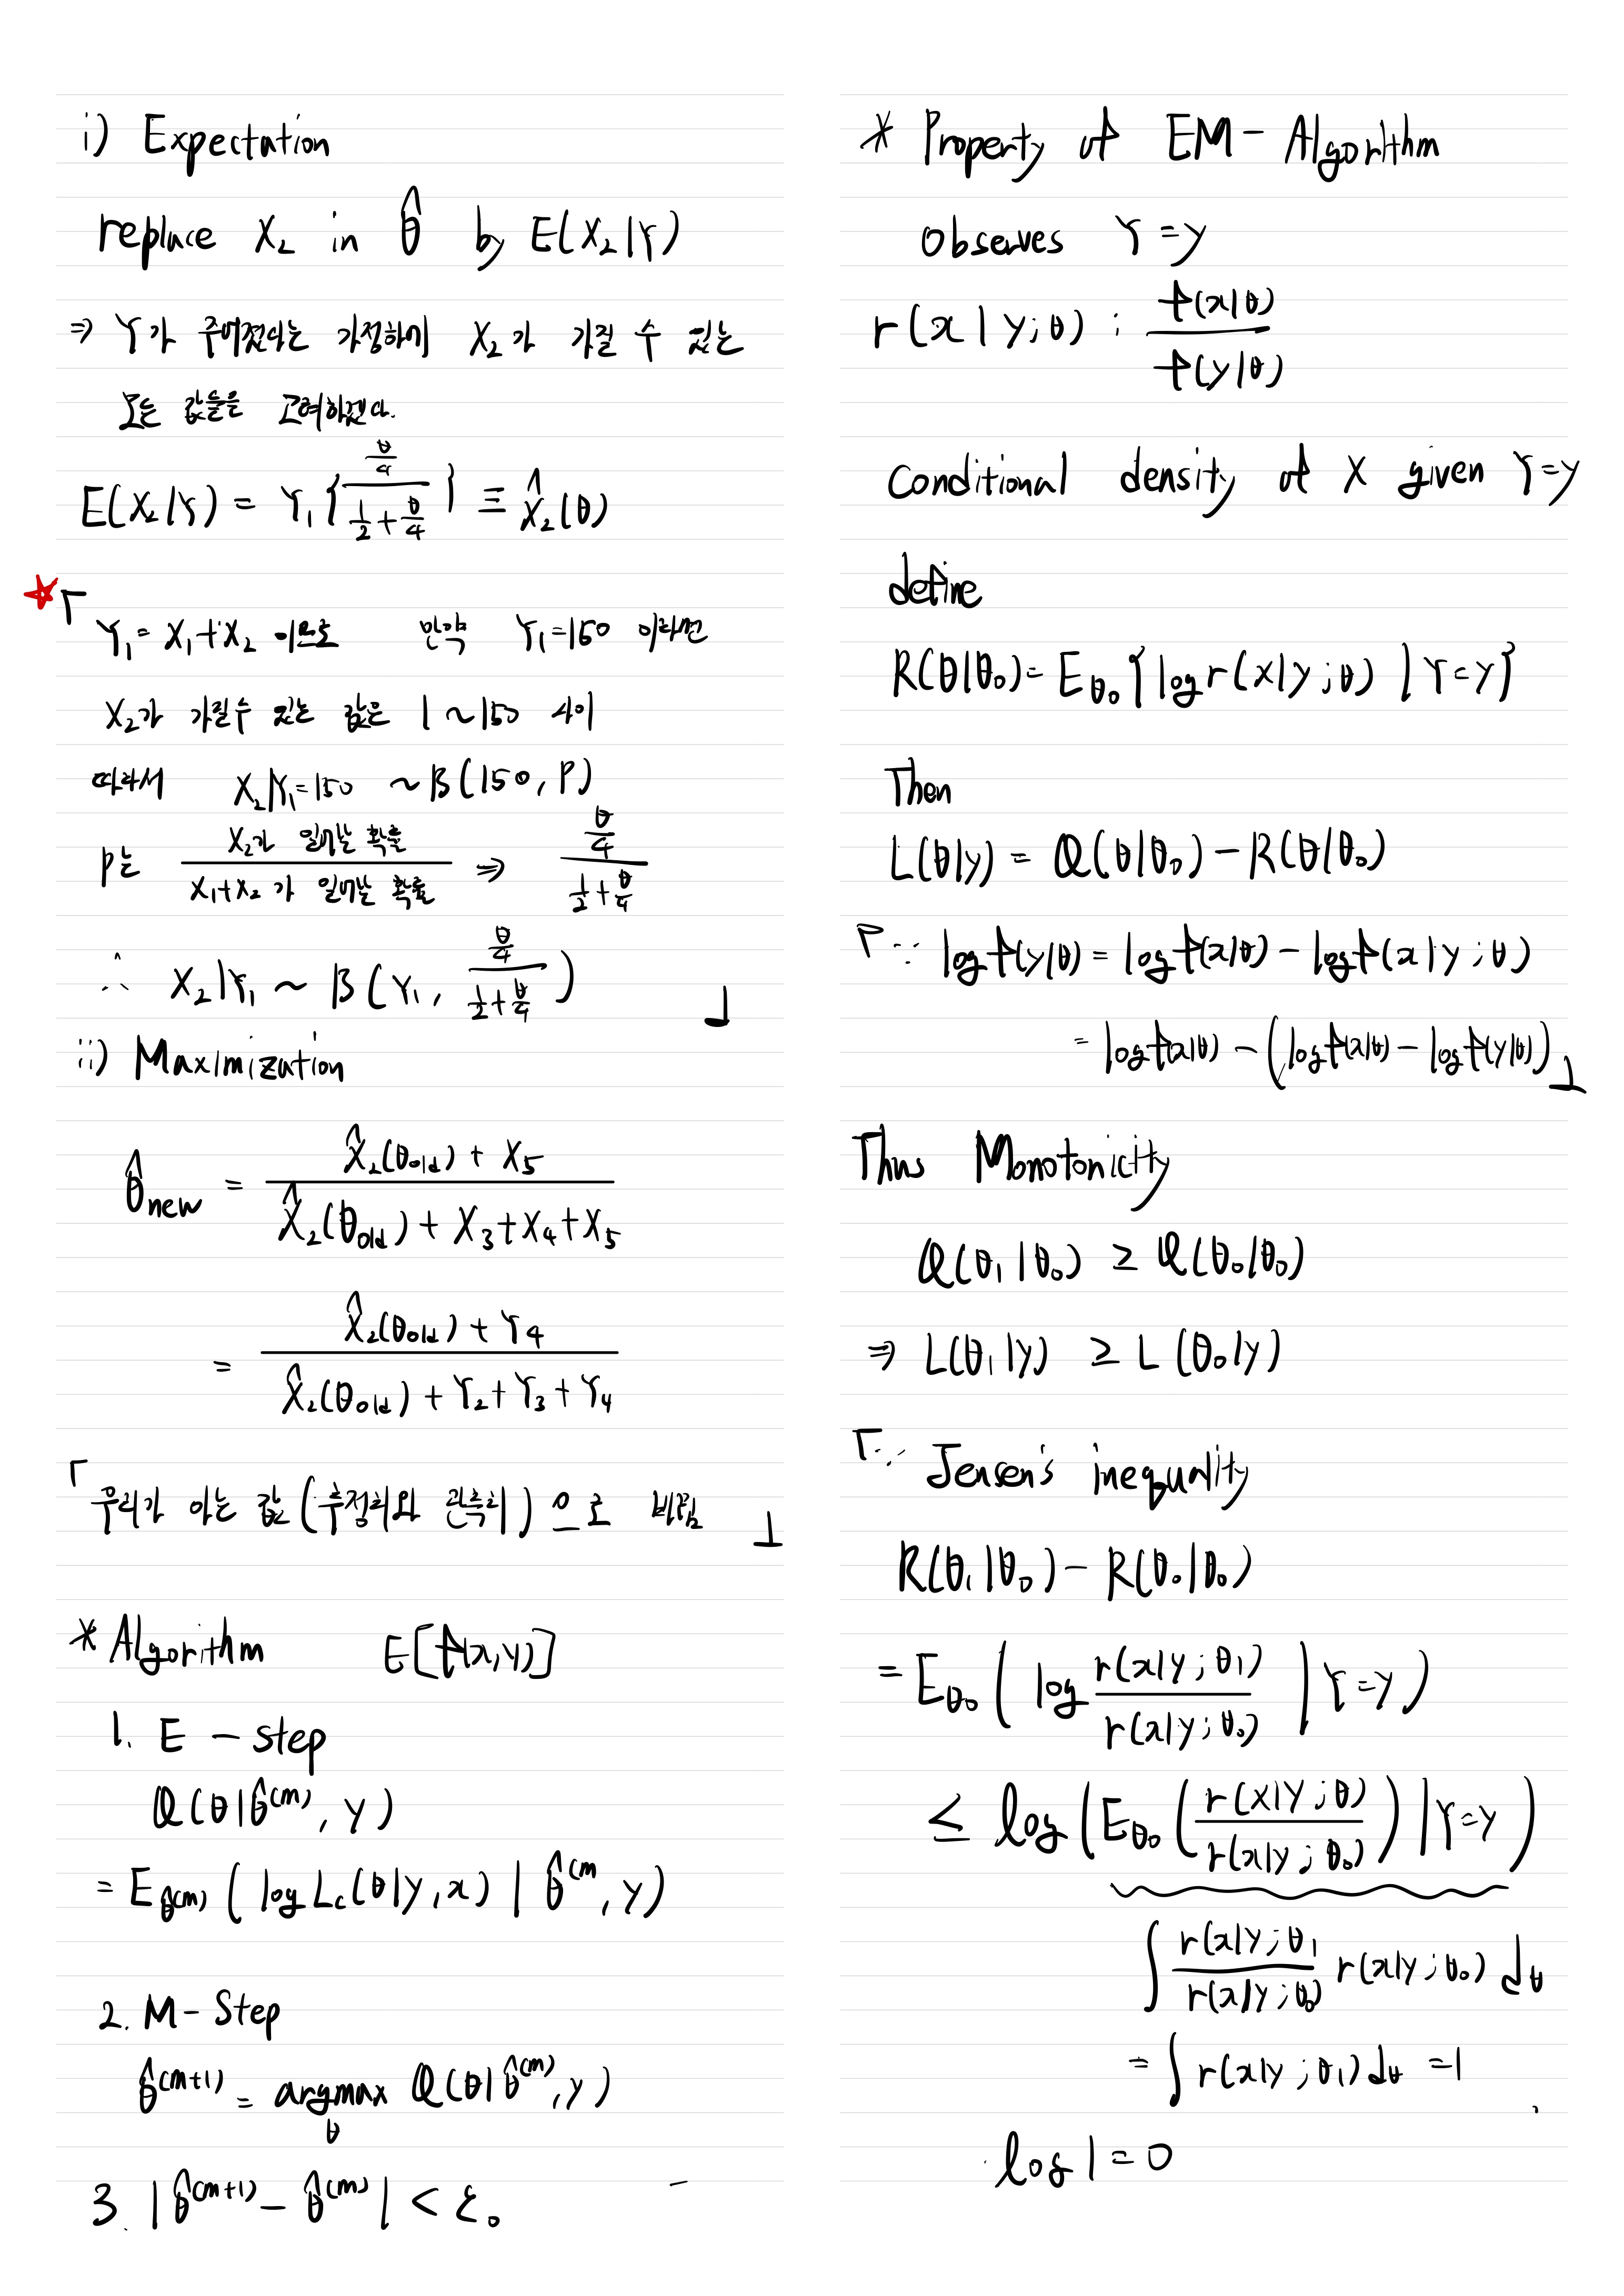 i) Expectation
replace X₂ in θ̂ by E(X₂|Y)
⇒ Y가 주어졌다는 가정하에 X₂가 가질 수 있는
모든 값들을 고려하겠다.
E(X₂|Y) = Y₁{(θ/4)/(1/2 + θ/4)} ≡ X̂₂(θ)
☆「
Y₁ = X₁+X₂ 이므로 만약 Y₁=150 이라면
X₂가 가질수 있는 값은 1~150 사이
따라서 X₂|Y₁=150 ~ B(150, P)
P는 X₂가 일어날 확률 / X₁+X₂가 일어날 확률 ⇒ (θ/4)/(1/2 + θ/4)
∴ X₂|Y₁ ~ B(Y₁, (θ/4)/(1/2 + θ/4)) 」
ii) Maximization
θ̂new = (X̂₂(θold) + X₅)/(X̂₂(θold) + X₃+X₄+X₅)
= (X̂₂(θold) + Y₄)/(X̂₂(θold) + Y₂+Y₃+Y₄)
「우리가 아는 값(추정치와 관측치)으로 바뀜 」
* Algorithm E[f(x,y)]
1. E - step
Q(θ|θ̂⁽ᵐ⁾, y)
= E_θ̂⁽ᵐ⁾ (log Lc(θ|y,x) | θ̂⁽ᵐ, y)
2. M - Step
θ̂⁽ᵐ⁺¹⁾ = argmax_θ Q(θ|θ̂⁽ᵐ⁾, y)
3. |θ̂⁽ᵐ⁺¹⁾ - θ̂⁽ᵐ⁾| < ε。
* Property of EM - Algorithm
observes Y=y
r(x|y;θ) : f(x|θ)/f(y|θ)
conditional density of X given Y=y
define
R(θ|θ₀) = E_θ₀{log r(x|y;θ) | Y=y}
Then
L(θ|y) = Q(θ|θ₀) - R(θ|θ₀)
「∵ log f(y|θ) = log f(x|θ) - log f(x|y;θ)
= log f(x|θ) - (log f(x|θ) - log f(y|θ)) 」
Thus Monotonicity
Q(θ₁|θ₀) ≥ Q(θ₀|θ₀)
⇒ L(θ₁|y) ≥ L(θ₀|y)
「∵ Jensen's inequality
R(θ₁|θ₀) - R(θ₀|θ₀)
= E_θ₀(log r(x|y;θ₁)/r(x|y;θ₀) | Y=y)
≤ log(E_θ₀(r(x|y;θ)/r(x|y;θ₀)) | Y=y)
∫ r(x|y;θ₁/r(x|y;θ₀) r(x|y;θ₀) dθ
= ∫ r(x|y;θ₁) dθ = 1
log 1 = 0